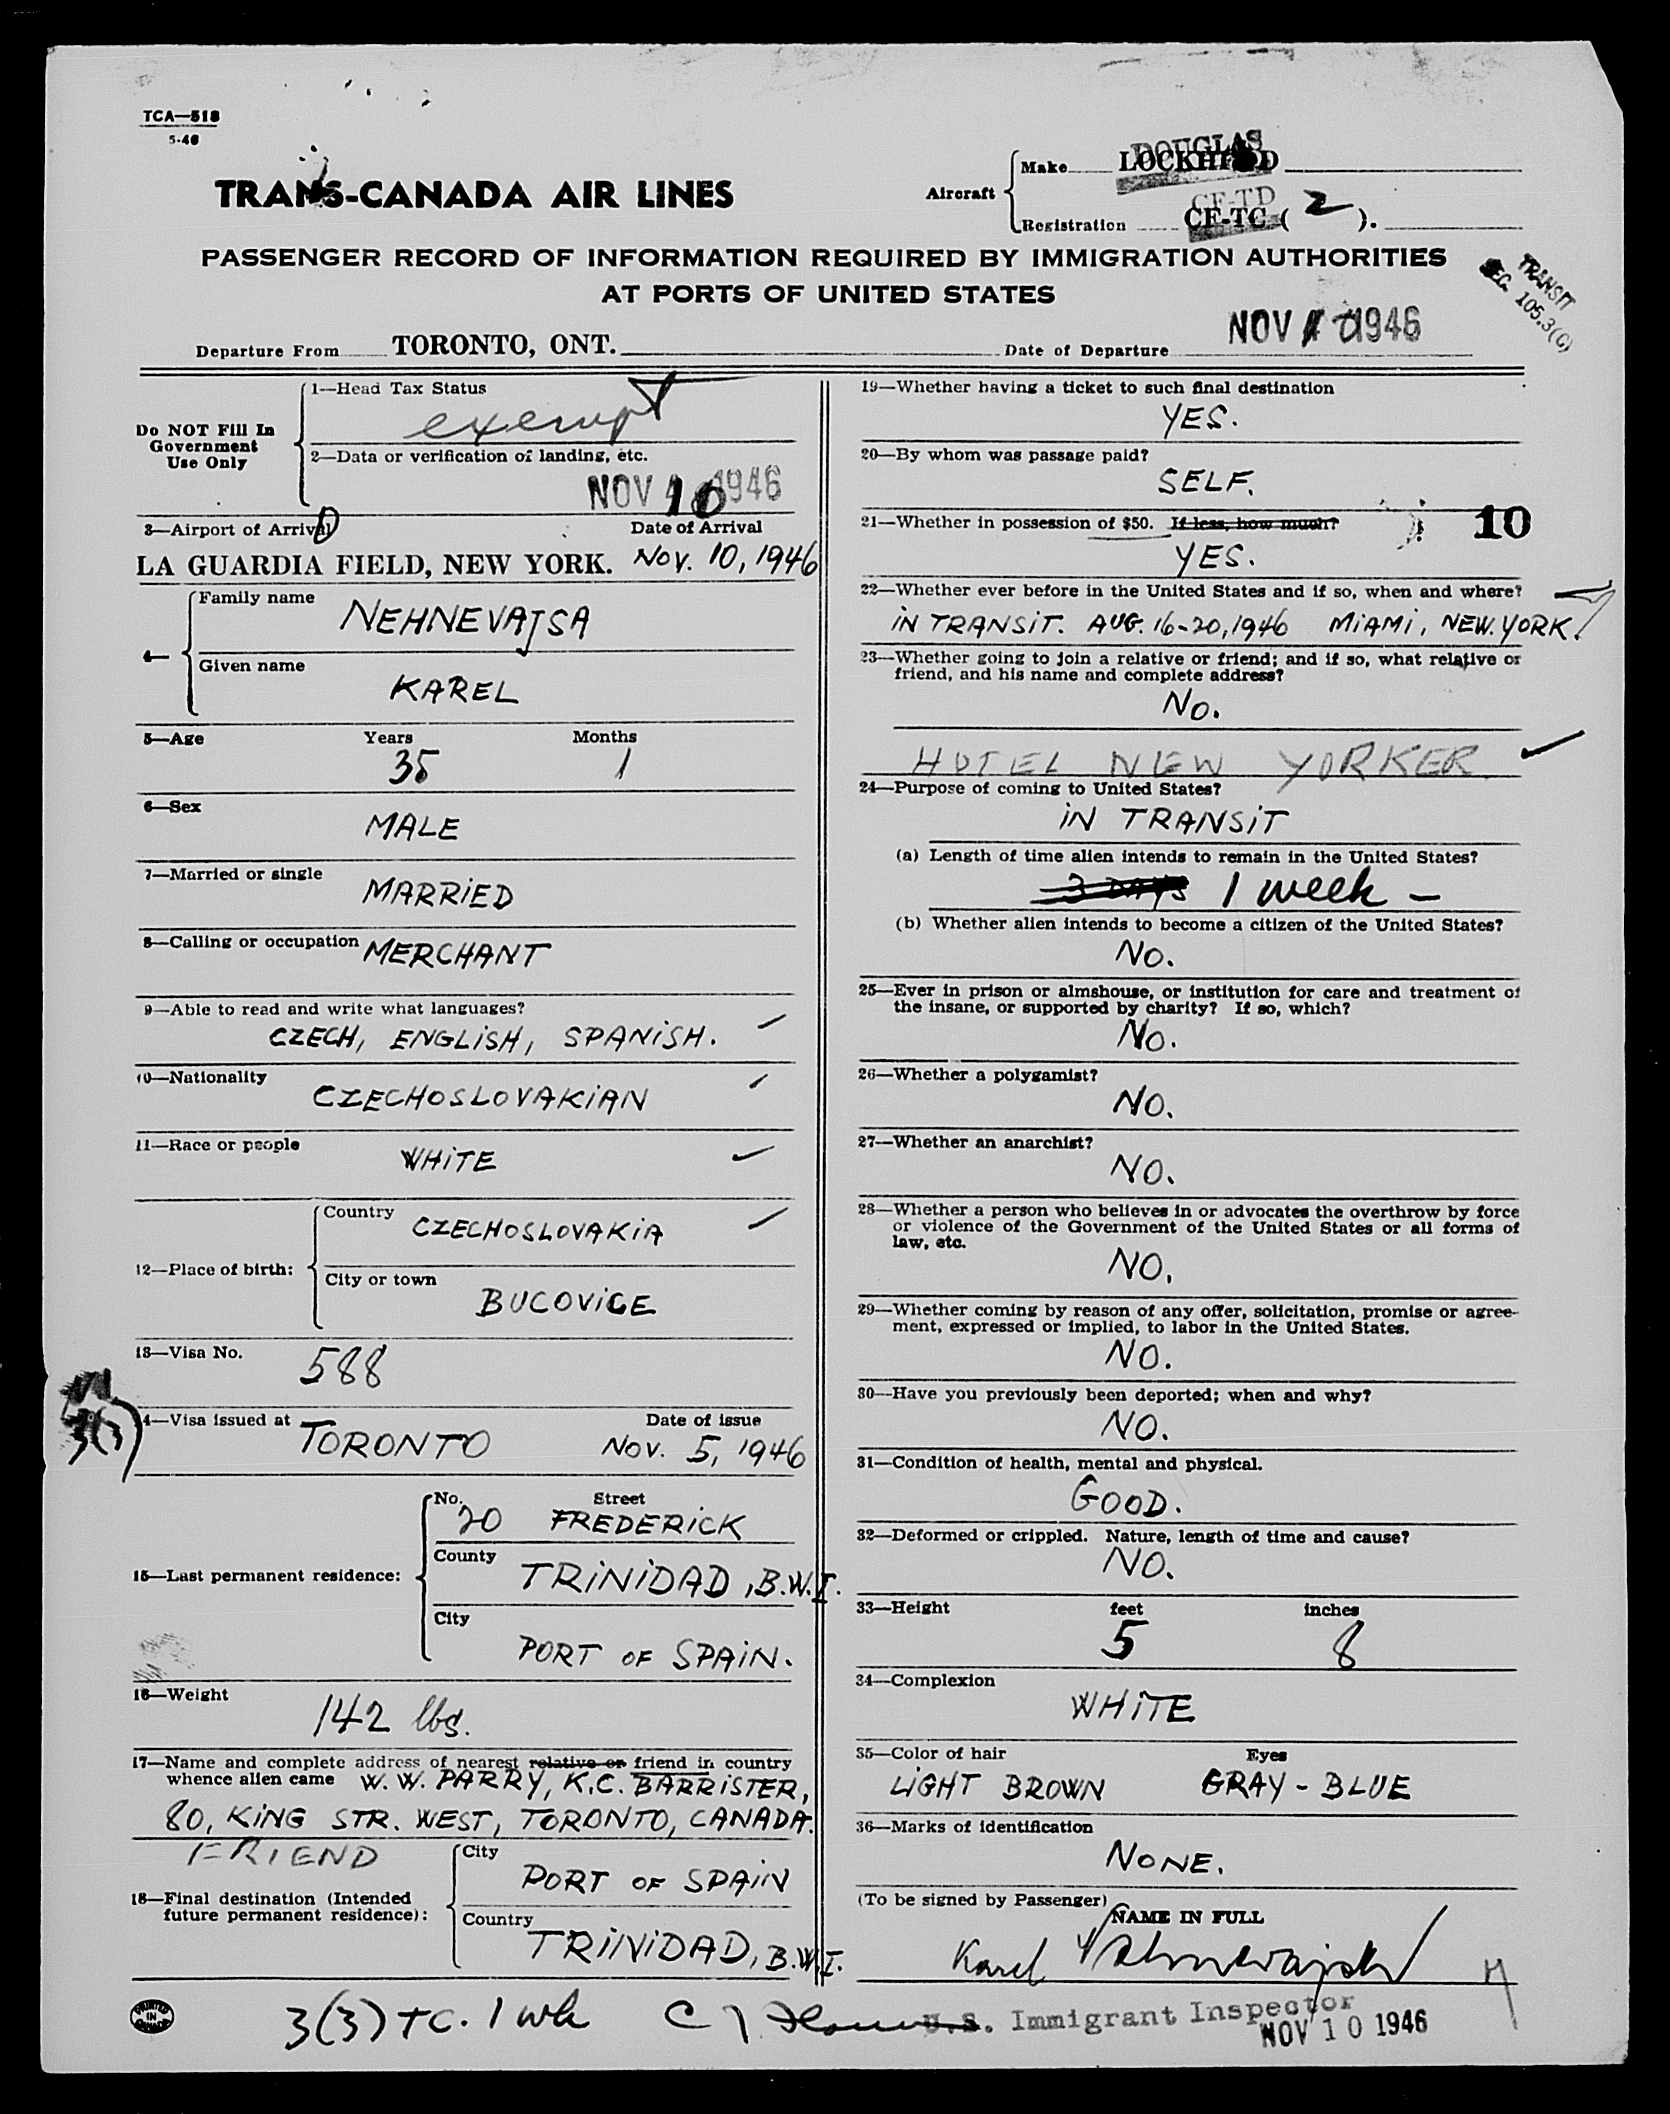 TCA—518
5-46
TRANS-CANADA AIR LINES
Aircraft
Make LOCKHEED DOUGLAS
Registration CF-TC CF-TD ( 2 ).
PASSENGER RECORD OF INFORMATION REQUIRED BY IMMIGRATION AUTHORITIES
AT PORTS OF UNITED STATES
TRANSIT
SEC. 105.3(G)
Departure From TORONTO, ONT.
Date of Departure NOV 1946
Do NOT Fill In
Government
Use Only
1—Head Tax Status
exempt
2—Data or verification of landing, etc.
NOV 10 1946
3—Airport of Arrival Date of Arrival
LA GUARDIA FIELD, NEW YORK. NOV. 10, 1946
4—
Family name NEHNEVAJSA
Given name
KAREL
5—Age Years Months
35 1
6—Sex
MALE
7—Married or single
MARRIED
8—Calling or occupation MERCHANT
9—Able to read and write what languages?
CZECH, ENGLISH, SPANISH.
10—Nationality
CZECHOSLOVAKIAN
11—Race or people
WHITE
12—Place of birth:
Country CZECHOSLOVAKIA
City or town
BUCOVICE
13—Visa No. 588
14—Visa issued at TORONTO Date of issue
NOV. 5, 1946
3(3)
15—Last permanent residence:
No. Street
20 FREDERICK
County
TRINIDAD, B.W.I.
City
PORT OF SPAIN.
16—Weight
142 lbs.
17—Name and complete address of nearest relative or friend in country
whence alien came W. W. PARRY, K.C. BARRISTER,
80, KING STR. WEST, TORONTO, CANADA.
FRIEND
18—Final destination (Intended
future permanent residence):
City
PORT OF SPAIN
Country
TRINIDAD, B.W.I.
19—Whether having a ticket to such final destination
YES.
20—By whom was passage paid?
SELF.
21—Whether in possession of $50. If less, how much? 10
YES.
22—Whether ever before in the United States and if so, when and where?
IN TRANSIT. AUG. 16-20, 1946 MIAMI, NEW.YORK.
23—Whether going to join a relative or friend; and if so, what relative or
friend, and his name and complete address?
NO.
HOTEL NEW YORKER
24—Purpose of coming to United States?
IN TRANSIT
(a) Length of time alien intends to remain in the United States?
3 DAYS 1 week —
(b) Whether alien intends to become a citizen of the United States?
NO.
25—Ever in prison or almshouse, or institution for care and treatment of
the insane, or supported by charity? If so, which?
NO.
26—Whether a polygamist?
NO.
27—Whether an anarchist?
NO.
28—Whether a person who believes in or advocates the overthrow by force
or violence of the Government of the United States or all forms of
law, etc.
NO.
29—Whether coming by reason of any offer, solicitation, promise or agree-
ment, expressed or implied, to labor in the United States.
NO.
30—Have you previously been deported; when and why?
NO.
31—Condition of health, mental and physical.
GOOD.
32—Deformed or crippled. Nature, length of time and cause?
NO.
33—Height feet inches
5 8
34—Complexion
WHITE
35—Color of hair Eyes
LIGHT BROWN GRAY - BLUE
36—Marks of identification
NONE.
(To be signed by Passenger)
NAME IN FULL
Karel Nehnevajsa
PRINTED
IN
CANADA
3(3) TC. 1 wk
U.S. Immigrant Inspector
NOV 10 1946